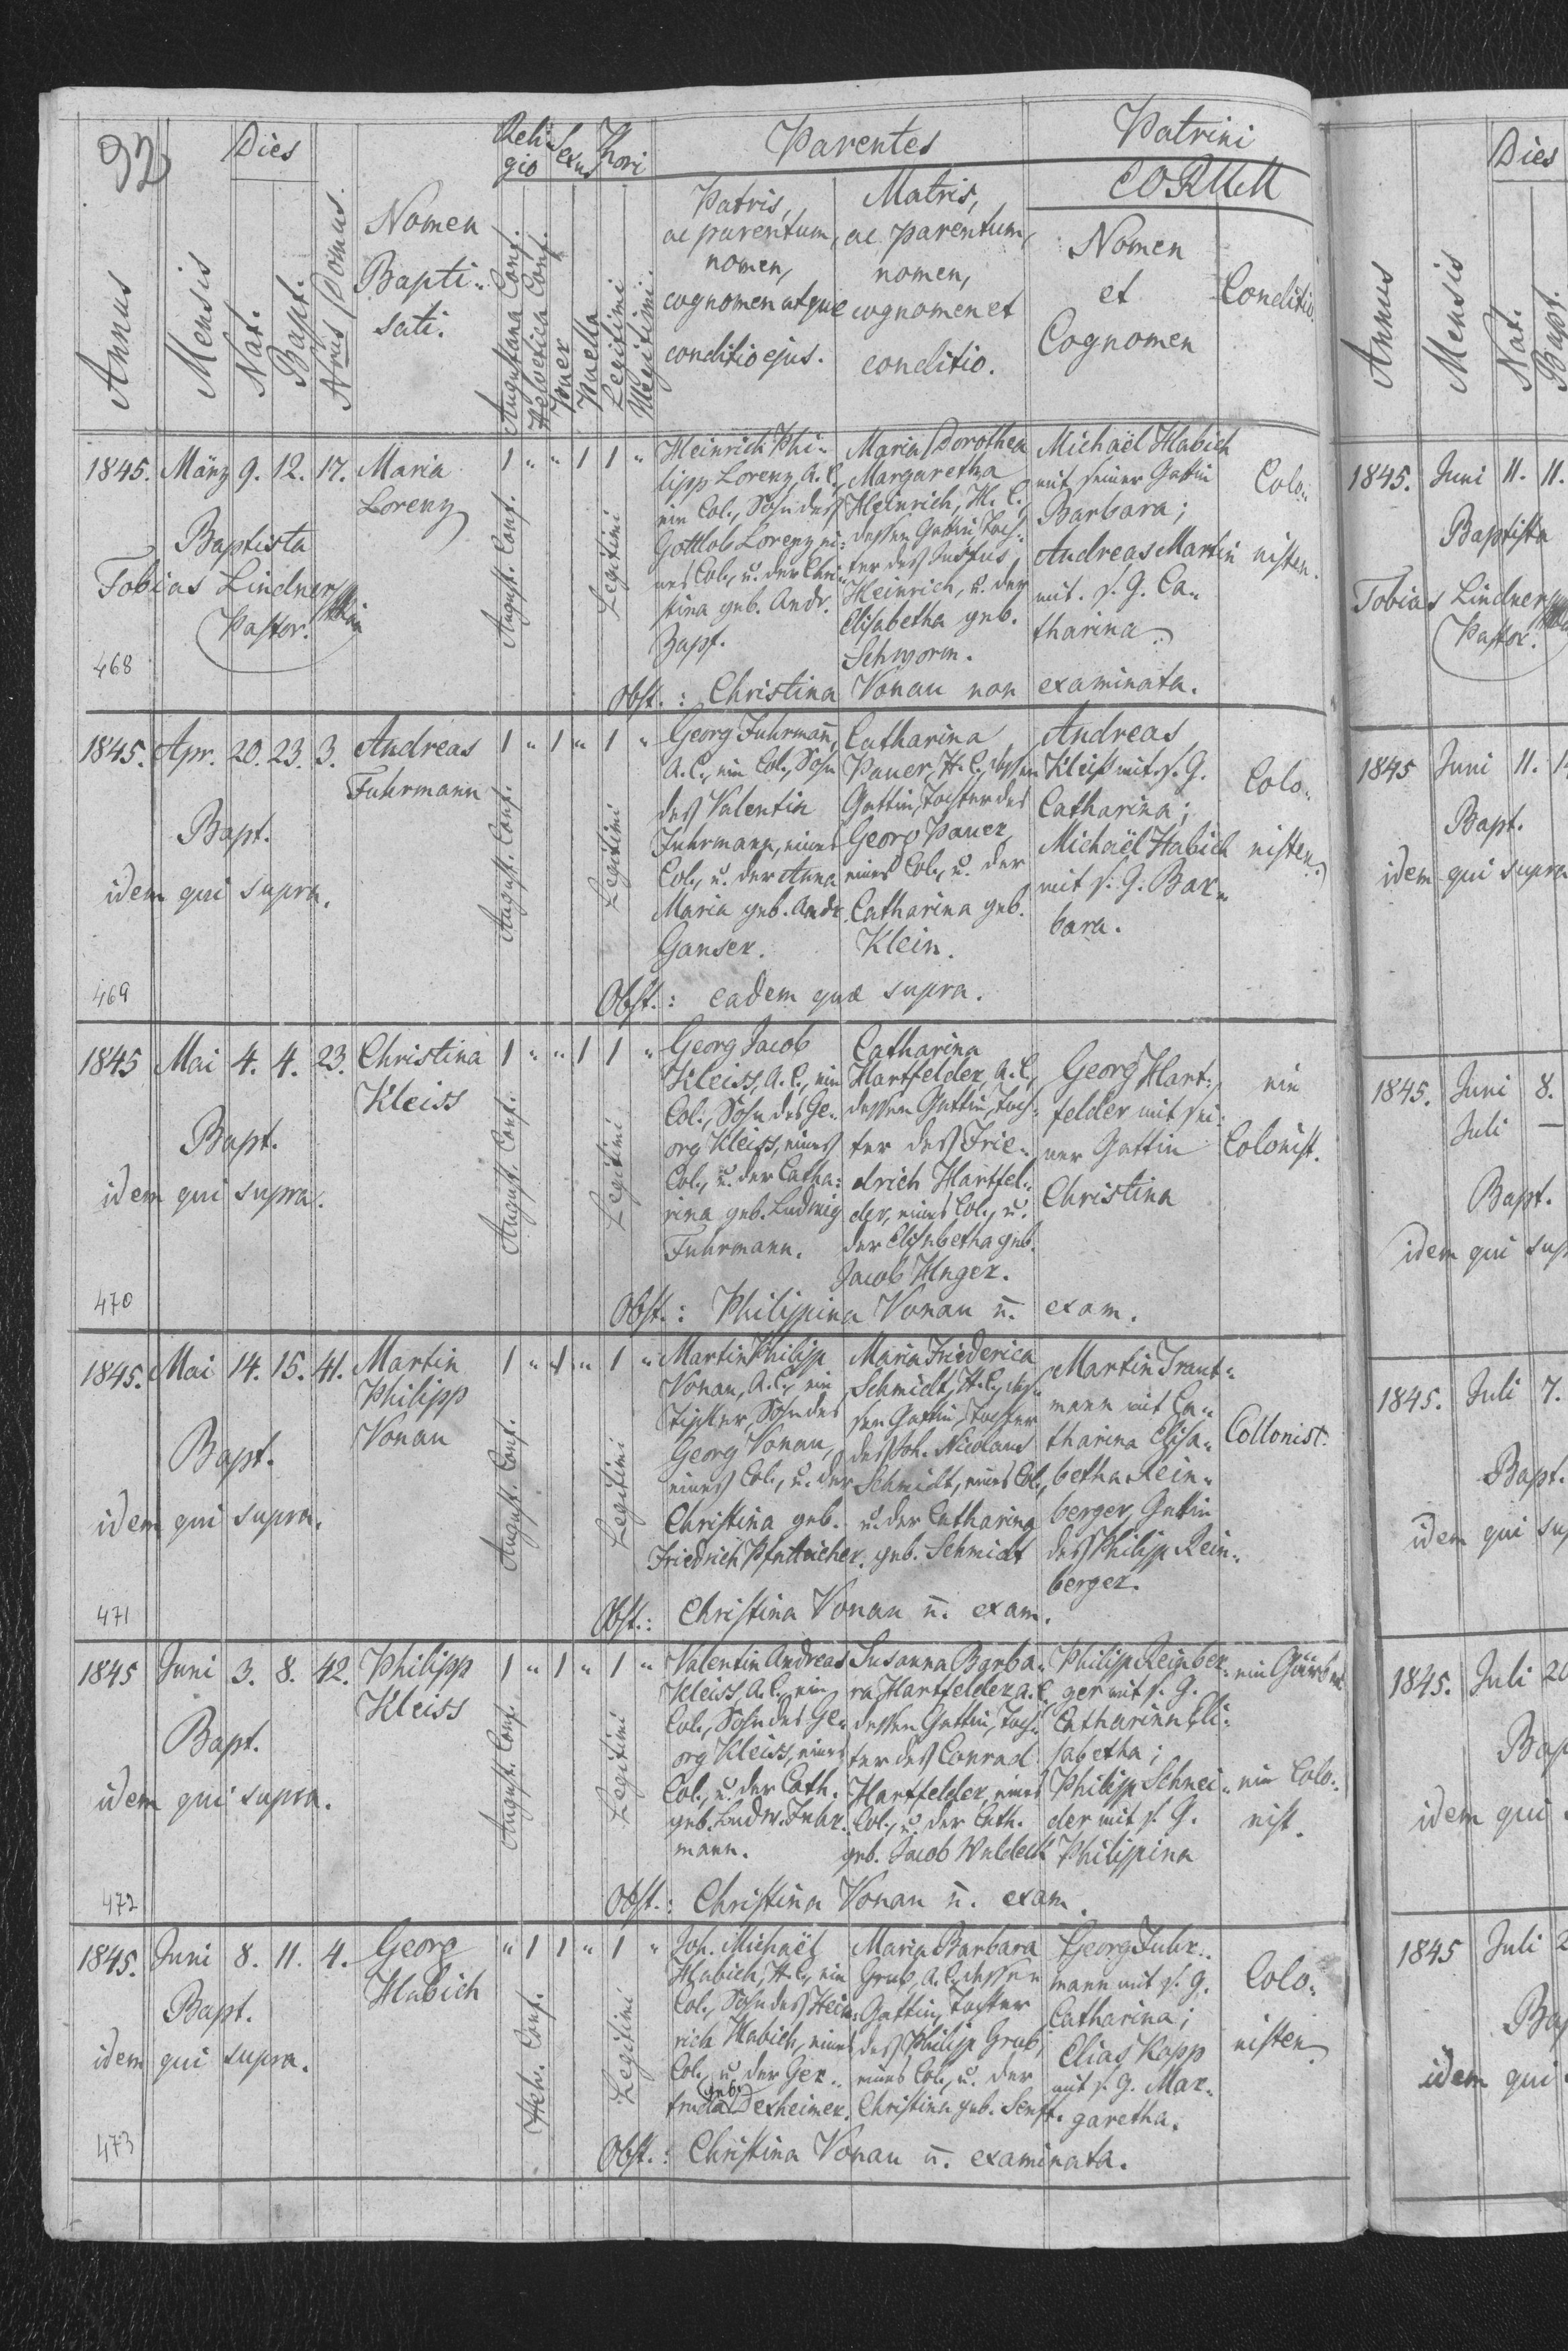 92
Dies
Religio
Sexus
Thori
Parentes
Patrini
EORUM
Annus
Mensis
Nat.
Bapt.
Nrus Domus.
Nomen
Bapti-
sati.
Augustana Conf.
Helvetica Conf.
Puer
Puella
Legitimi
Illegitimi
Patris,
ac parentum,
nomen,
cognomen atque
conditio ejus.
Matris,
ac parentum,
nomen,
cognomen et
conditio.
Nomen
et
Cognomen
Conditio.
1845. März 9. 12. 17. Maria
Lorenz
Baptista
Tobias Lindner
Pastor.
468
1 " " 1 1 "
August. Conf.
Legitimi
Heinrich Phi-
lipp Lorenz, A. C.,
ein Col., Sohn des
Gottlob Lorenz ei-
nes Col., u. der Chri-
stina geb. Andr.
Zapf.
Maria Dorothea
Margaretha
Heinrich, H. C.,
dessen Gattin, Toch-
ter des Justus
Heinrich, u. der
Elisabetha geb.
Schworm.
Michaël Habich
mit seiner Gattin
Barbara;
Andreas Martin
mit s. G. Ca-
tharina
Colo-
nisten.
Obst.: Christina Vonau non examinata.
1845. Apr. 20. 23. 3. Andreas
Fuhrmann
Bapt.
idem qui supra.
469
1 " 1 " 1 "
August. Conf.
Legitimi
Georg Fuhrmann,
A. C., ein Col., Sohn
des Valentin
Fuhrmann, eines
Col., u. der Anna
Maria geb. Andr.
Ganser.
Catharina
Pauer, H. C., dessen
Gattin, Tochter des
Georg Pauer,
eines Col., u. der
Catharina geb.
Klein.
Andreas
Kleiß mit s. G.
Catharina;
Michaël Habich
mit s. G. Bar-
bara.
Colo-
nisten.
Obst.: eadem quæ supra.
1845 Mai 4. 4. 23. Christina
Kleiss
Bapt.
idem qui supra.
470
1 " " 1 1 "
August. Conf.
Legitimi
Georg Jacob
Kleiss, A. C., ein
Col., Sohn des Ge-
org Kleiss, eines
Col., u. der Catha-
rina geb. Ludwig
Fuhrmann.
Catharina
Hartfelder, A. C.,
dessen Gattin, Toch-
ter des Frie-
drich Hartfel-
der, eines Col., u.
der Elisabetha geb.
Jacob Unger.
Georg Hart-
felder mit sei-
ner Gattin
Christina
ein
Colonist.
Obst.: Philippina Vonau n. exam.
1845. Mai 14. 15. 41. Martin
Philipp
Vonau
Bapt.
idem qui supra.
471
1 " 1 " 1 "
August. Conf.
Legitimi
Martin Philipp
Vonau, A. C., ein
Tischler, Sohn des
Georg Vonau,
eines Col., u. der
Christina geb.
Friedrich
Maria Friederica
Schmidt, H. C., des-
sen Gattin, Tochter
des Joh. Nicolaus
Schmidt, eines Col.,
u. der Catharina
geb. Schmidt
Martin Traut-
mann mit Ca-
tharina Elisa-
betha Rein-
berger, Gattin
des Philipp Rein-
berger.
Collonist.
Obst.: Christina Vonau n. exam.
1845 Juni 3. 8. 42. Philipp
Kleiss
Bapt.
idem qui supra.
472
1 " 1 " 1 "
August. Conf.
Legitimi
Valentin Andreas
Kleiss, A. C., ein
Col., Sohn des Ge-
org Kleiss, eines
Col., u. der Cath.
geb. Ludw. Fuhr-
mann.
Susanna Barba-
ra Hartfelder A. C.
dessen Gattin, Toch-
ter des Conrad
Hartfelder, eines
Col., u. der Cath.
geb. Jacob Waldeck
Philipp Reinber-
ger mit s. G.
Catharina Eli-
sabetha;
Philipp Schnei-
der mit s. G.
Philippina
ein Gärber
ein Colo-
nist.
Obst.: Christina Vonau n. exam.
1845. Juni 8. 11. 4. Georg
Habich
Bapt.
idem qui supra.
473
" 1 1 " 1 "
Helv. Conf.
Legitimi
Joh. Michaël
Habich, H. C., ein
Col., Sohn des Hein-
rich Habich, eines
Col., u. der Ger-
truda geb. Dexheimer.
Maria Barbara
Grub, A. C., dessen
Gattin, Tochter
des Philipp Grub,
eines Col., u. der
Christina geb. Senft.
Georg Fuhr-
mann mit s. G.
Catharina;
Elias Kopp
mit s. G. Mar-
garetha.
Colo-
nisten
Obst.: Christina Vonau n. examinata.
Dies
Annus
Mensis
Nat.
Bapt.
1845. Juni 11. 11.
Baptista
Tobias Lindner
Pastor.
1845 Juni 11.
Bapt.
idem qui supra
1845. Juni 8.
Juli —
Bapt.
idem qui sup
1845. Juli 7.
Bapt.
idem qui sup
1845. Juli 20
Bap
idem qui
1845 Juli 2
Bap
idem qui